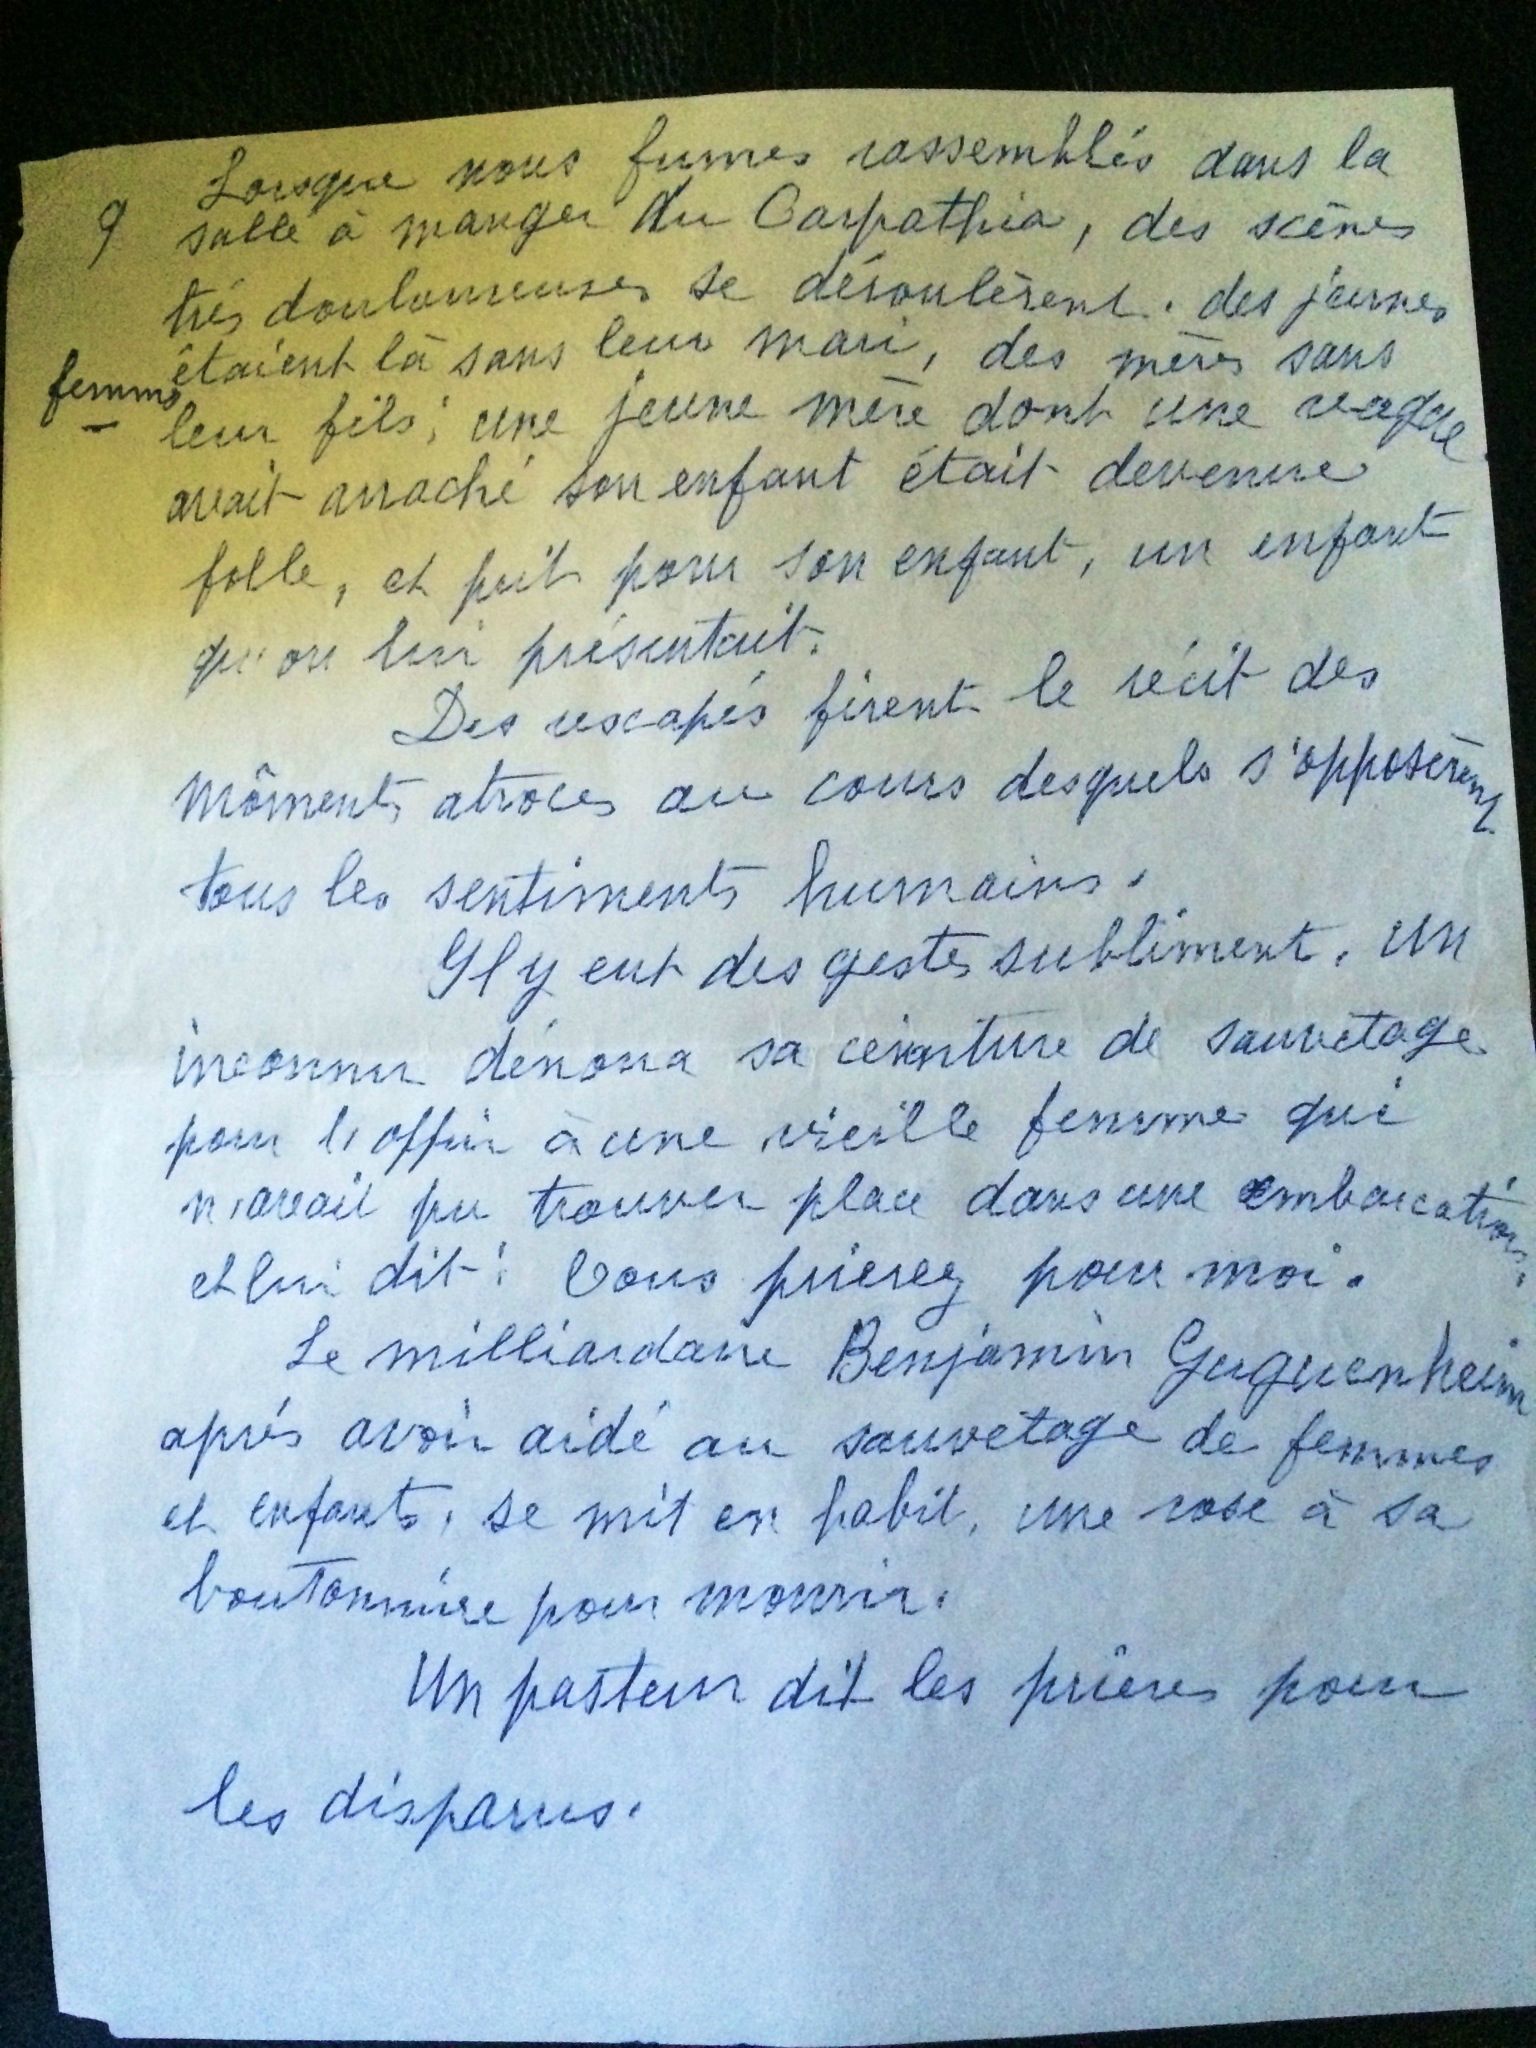 Lorsque nous fumes rassemblés dans la
9 salle à manger du Carpathia, des scènes
très douloureuses se déroulèrent. des jeunes
femmes étaient là sans leur mari, des mères sans
leur fils; une jeune mère dont une vague
avait arraché son enfant était devenue
folle, et prit pour son enfant, un enfant
qu'on lui présentait.
Des rescapés firent le récit des
môments atroces au cours desquels s'opposèrent
tous les sentiments humains.
Il y eut des gestes subliment. Un
inconnu dénoua sa ceinture de sauvetage
pour l'offrir à une vieille femme qui
n'avait pu trouver place dans une embarcation,
et lui dit: Vous prierez pour moi.
Le milliardaire Benjamin Guguenheim
après avoir aidé au sauvetage de femmes
et enfants, se mit en habit, une rose à sa
boutonnière pour mourir.
Un pasteur dit les prières pour
les disparus.